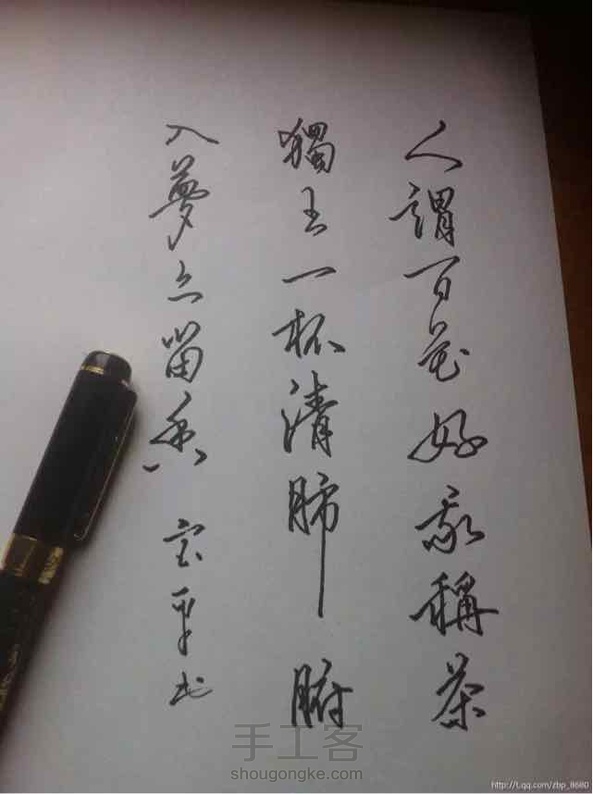 人謂百花好我稱茶
獨王一杯清肺腑
入夢亦留香 宝平书
手工客
shougongke.com
http://t.qq.com/zbp_8680